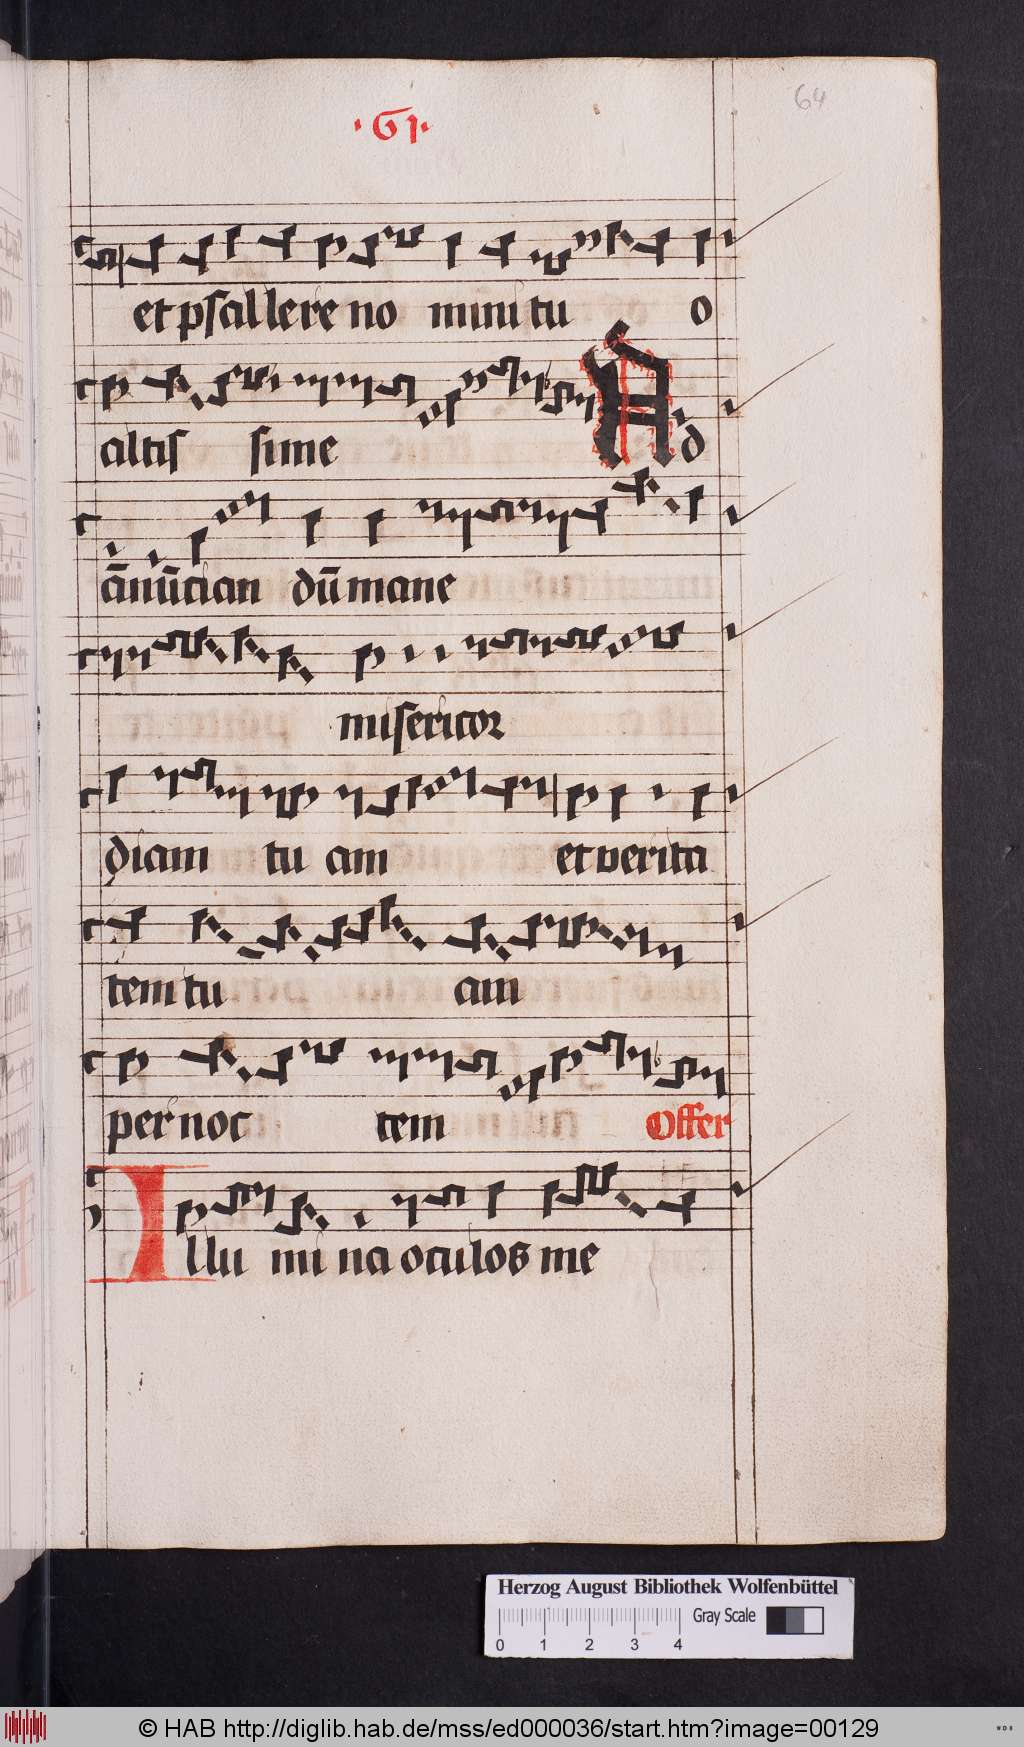 ·61·
64
et psallere no mini tu o
altis sime Ad
ānūcian dūmane
misericor
diam tu am et verita
tem tu am
per noc tem Offer
Illu mi na oculos me
Herzog August Bibliothek Wolfenbüttel
Gray Scale
0 1 2 3 4
© HAB http://diglib.hab.de/mss/ed000036/start.htm?image=00129